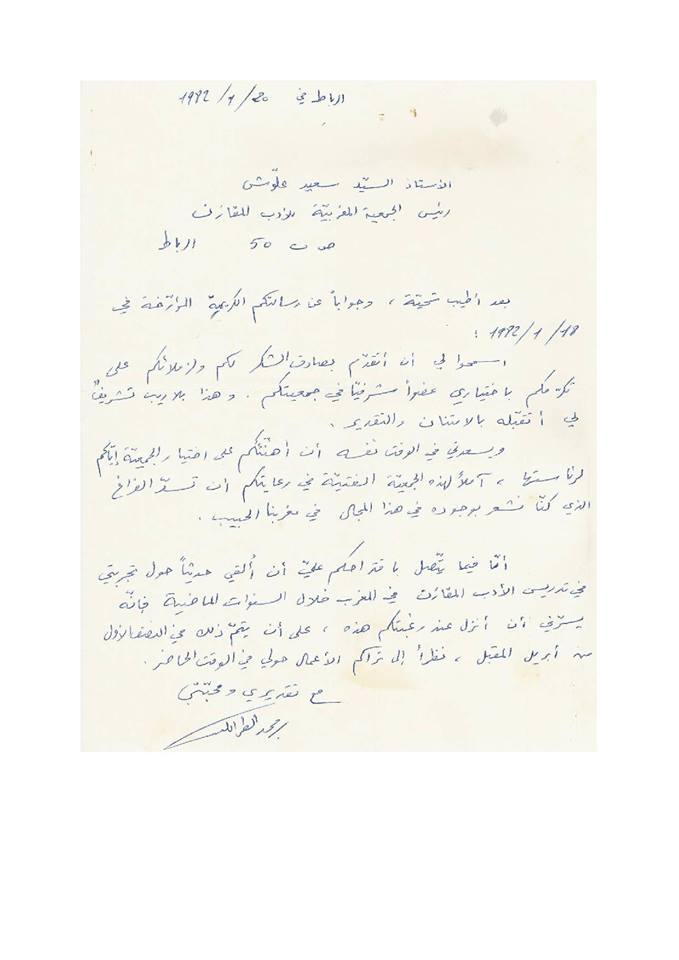 الرباط في 20 / 1 / 1982
الأستاذ السيّد سعيد علّوش
رئيس الجمعية المغربيّة للأدب المقارن
ص ب 50 الرباط
بعد أطيب تحيّة ، وجواباً عن رسالتكم الكريمة المؤرّخة في
18 / 1 / 1982 :
اسمحوا لي أن أتقدّم بصادق الشكر لكم ولزملائكم على
تكرّمكم باختياري عضواً شرفيّاً في جمعيتكم . وهذا بلا ريب تشريفٌ
لي أتقبّله بالامتنان والتقدير .
ويسعدني في الوقت نفسه أن أهنّئكم على اختيار الجمعيّة إيّاكم
لرئاستها ، آملاً لهذه الجمعيّة الفتيّة في رعايتكم أن تسدّ الفراغ
الذي كنّا نشعر بوجوده في هذا المجال في مغربنا الحبيب .
أمّا فيما يتّصل باقتراحكم عليّ أن ألقي حديثاً حول تجربتي
في تدريس الأدب المقارن في المغرب خلال السنوات الماضية فإنّه
يسرّني أن أنزل عند رغبتكم هذه ، على أن يتمّ ذلك في النصف الأول
من أبريل المقبل ، نظراً إلى تراكم الأعمال حولي في الوقت الحاضر .
مع تقديري ومحبّتي
محمد